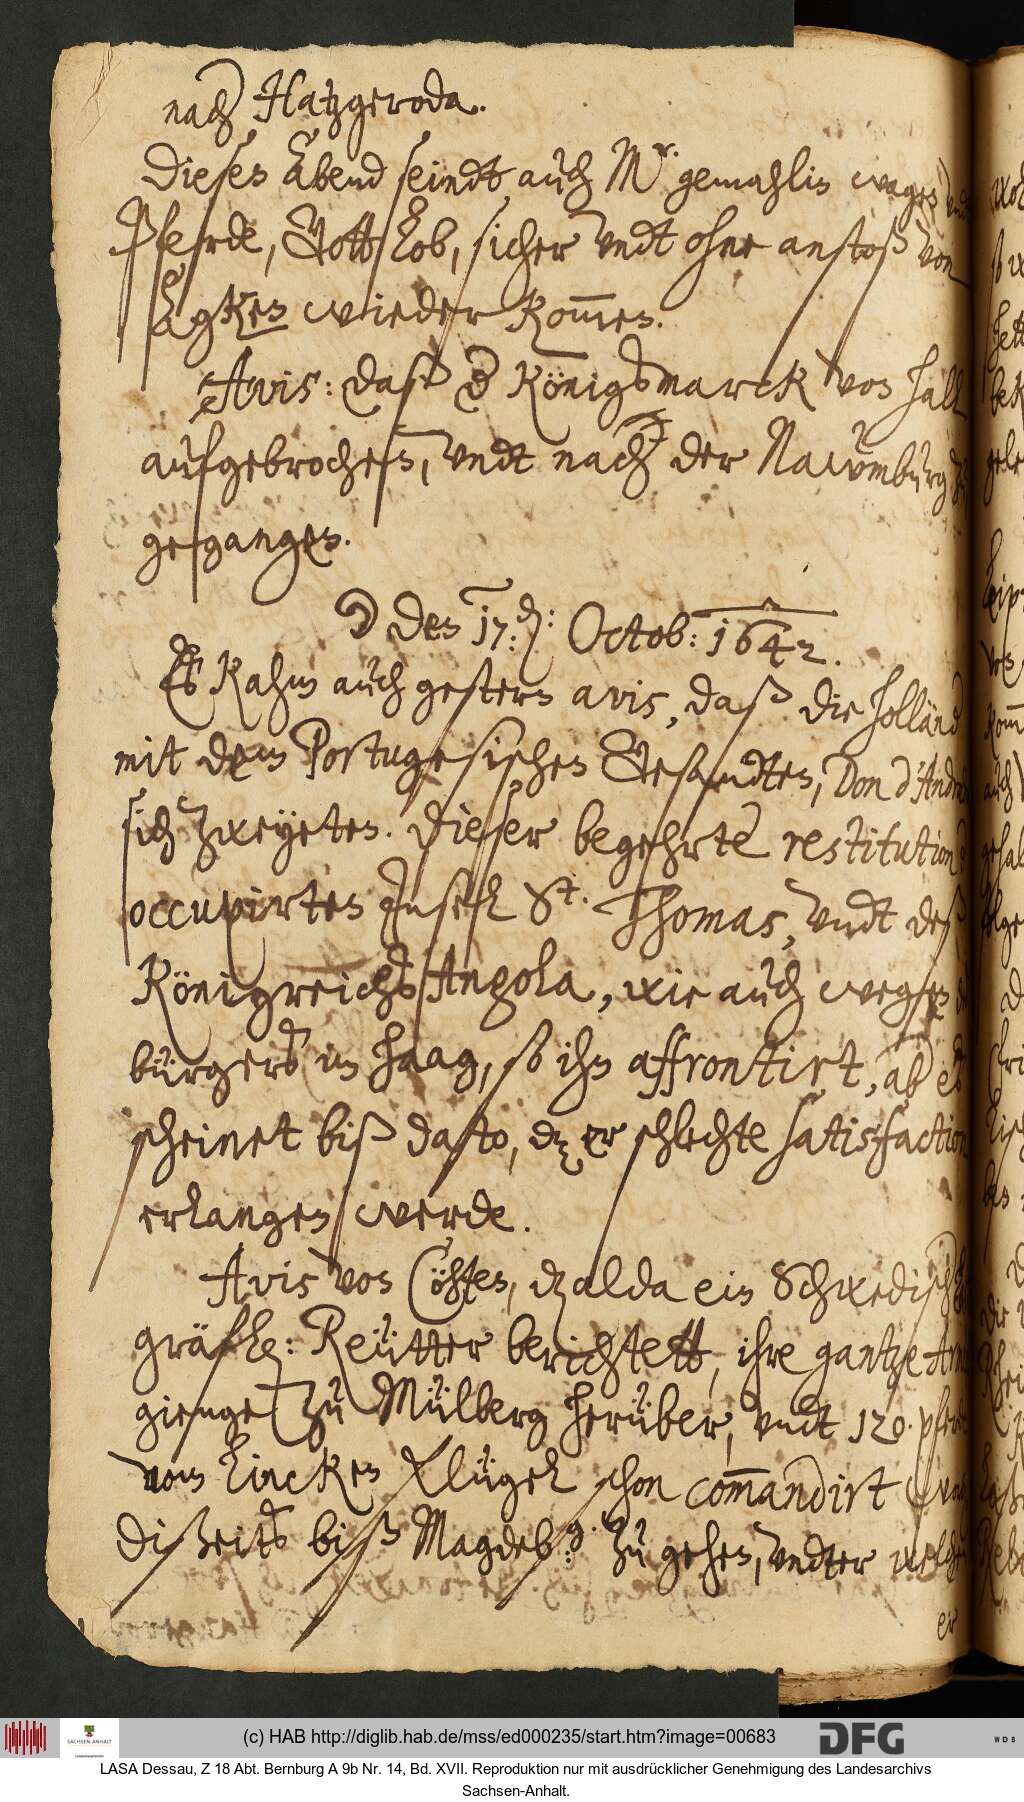 nach Hatzgeroda.
Dieses Abend seindt auch Mr. gemahlin wagen vndt
Pferde, Gott lob, sicher vndt ohne anstoß von
Ägken wieder kommen.
Avis: daß der Königsmarck von Hall
aufgebrochen, vndt nach der Nawmburg zu
gegangen.
☽ den 17.den: Octob: 1642.
Es kahm auch gestern avis, daß die Holländ
mit dem Portugesischen Gesandten, Don d'Andrad
sich zweyeten. Dieser begehrte restitution d
occupirten Insel St. Thomas, vndt deß
Königreichs Angola, wie auch wegen
bürgers im Haag, so ihn affrontirt, ab es
scheinet biß dato, dz er schlechte satisfaction
erlangen werde.
Avis von Cöhten, dz alda ein Schwedisch
gräfl: Reütter berichtett, ihre gantze Arm
gienge zu Mülberg herüber, vndt 120 pferd
vom lincken Flügel schon commandirt
dißeits biß Magdeb.g: zu gehen, vndter welch
ei
(c) HAB http://diglib.hab.de/mss/ed000235/start.htm?image=00683
SACHSEN-ANHALT
DFG
WDB
LASA Dessau, Z 18 Abt. Bernburg A 9b Nr. 14, Bd. XVII. Reproduktion nur mit ausdrücklicher Genehmigung des Landesarchivs
Sachsen-Anhalt.